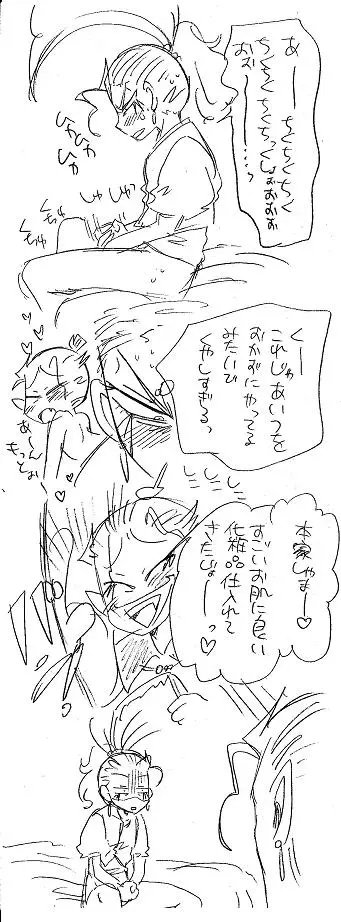 あ——ちくちくちく
ちくちくちくちっくしょおおおぉ
おお——……っ
ひゃ
ひゃ
ひゃ
しゅ
しゅっ
くちゅ
くちゅ
くちゅ
くー
これじゃあいつを
おかずにやってる
みたいで
くやしすぎるっ
あーん
もっとぉ
本家しゃまー♡
すごいお肌に良い
化粧品仕入れて
きたじょーっ♡